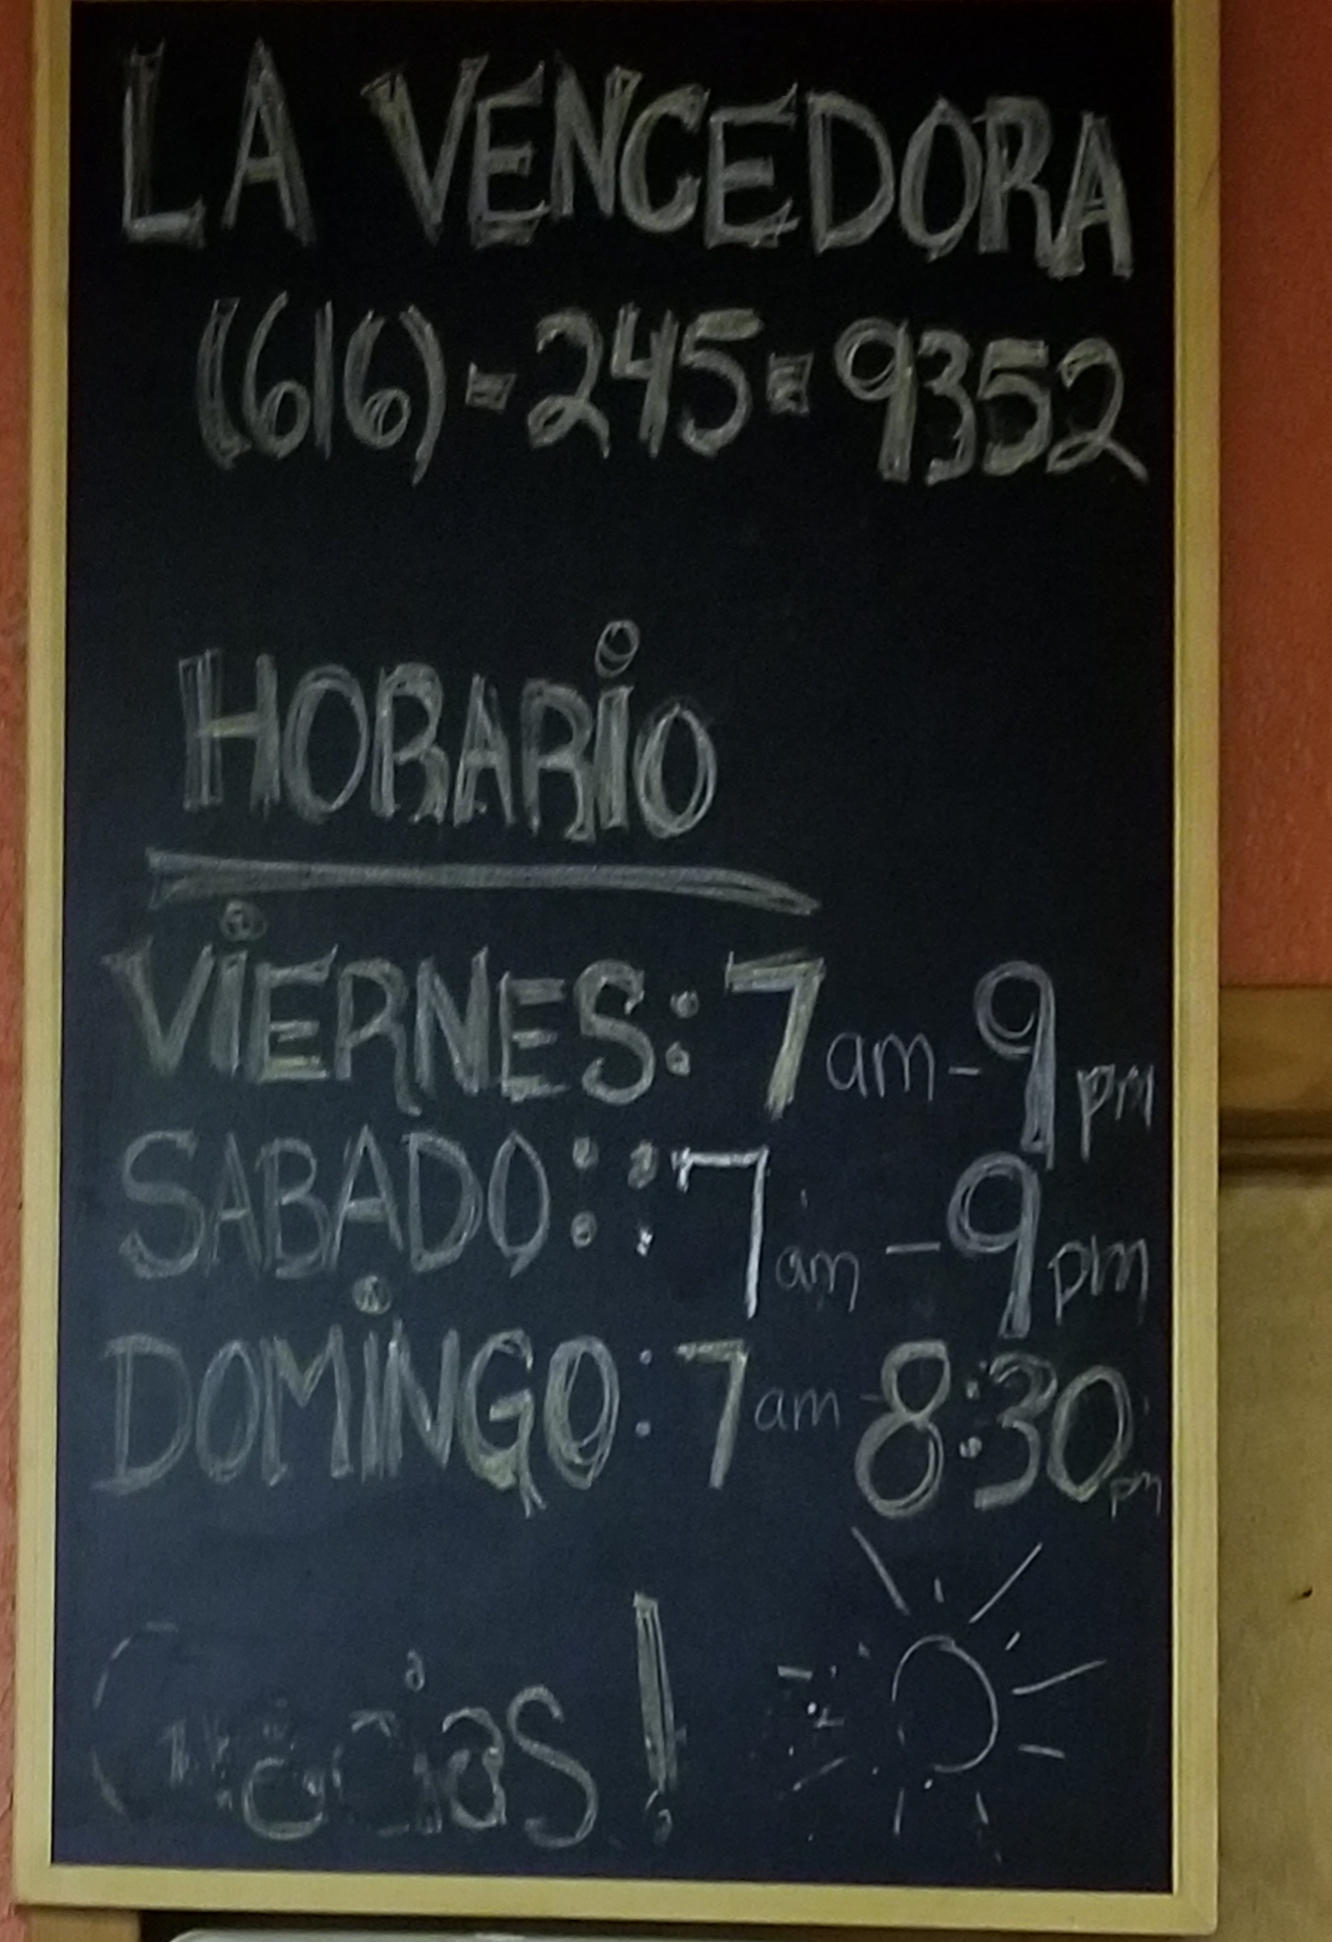 LA VENCEDORA
(616)-245-9352
HORARiO
ViERNES: 7am-9pm
SABADO: :7am-9pm
DOMiNGO: 7am-8:30pm
Gracias!